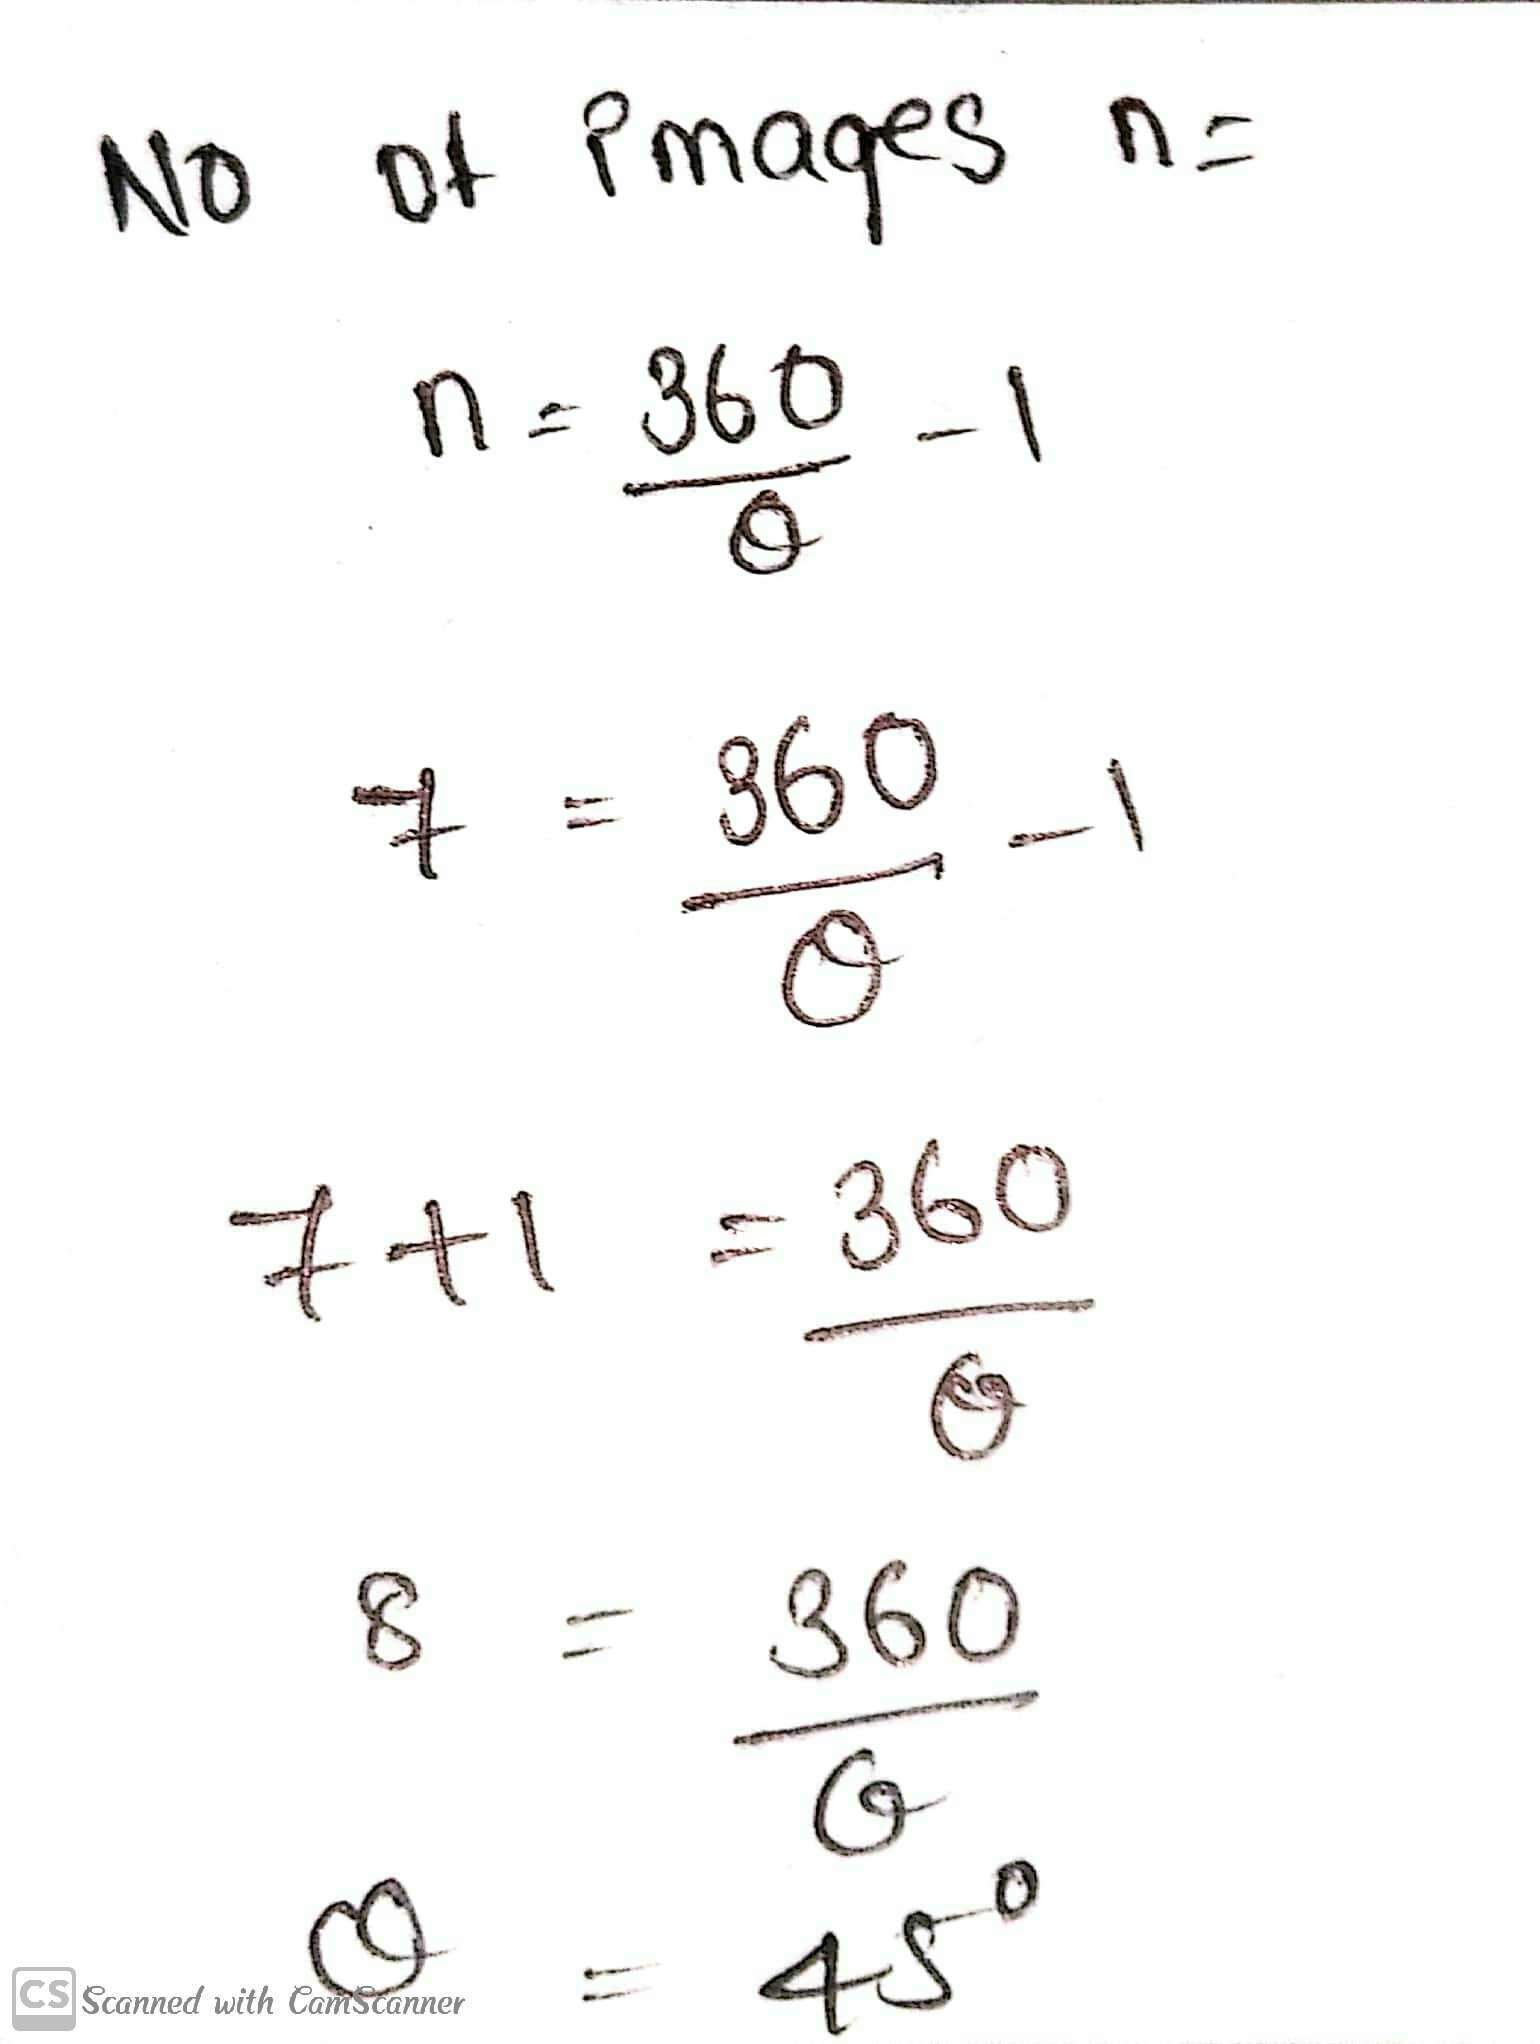 No of images n=
n = 360/θ - 1
7 = 360/θ - 1
7+1 = 360/θ
8 = 360/θ
θ = 45°
CS Scanned with CamScanner